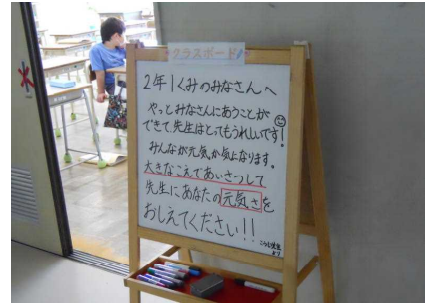 クラスボード
2年1くみのみなさんへ
やっとみなさんにあうことが
できて先生はとってもうれしいです！
みんなが元気か気になります。
大きなこえであいさつして
先生にあなたの元気さを
おしえてください!!
より